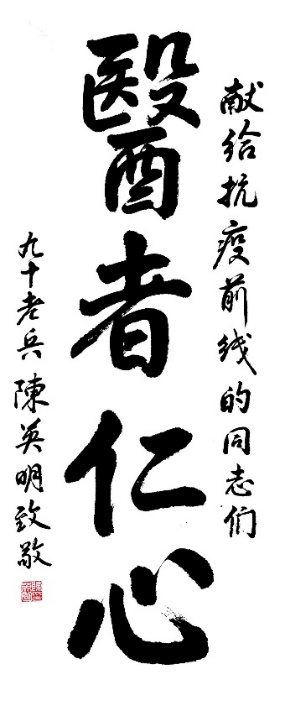 献给抗疫前线的同志们
醫者仁心
九十老兵陳英明致敬